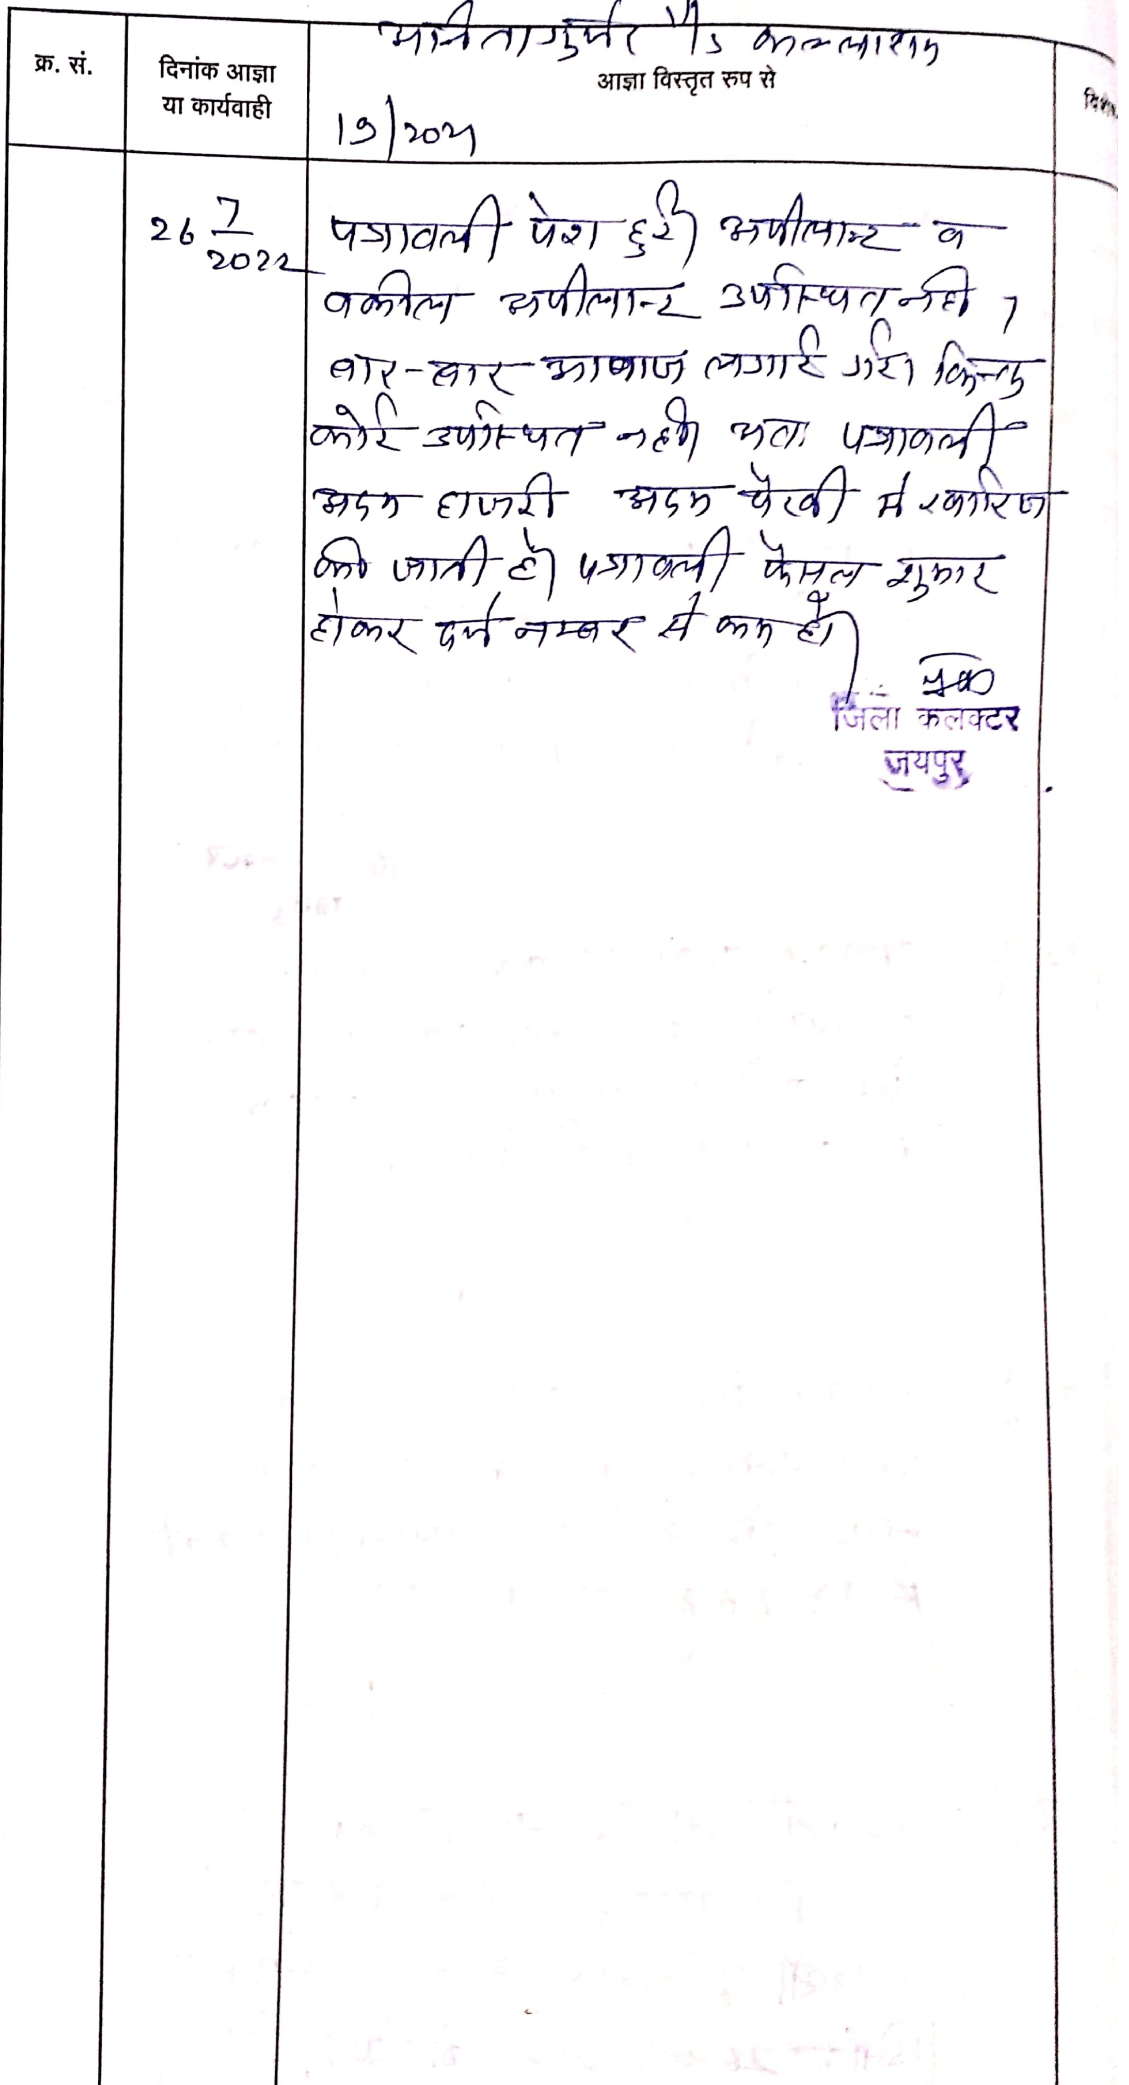 अनिता गुर्जर V/s कल्लाराम
क्र. सं.
दिनांक आज्ञा
या कार्यवाही
आज्ञा विस्तृत रुप से
19/2021
26 7/2022
पत्रावली पेश हुई। अपीलान्ट व
वकील अपीलान्ट उपस्थित नही।
बार-बार आवाज लगाई गई। किन्तु
कोई उपस्थित नही। अतः पत्रावली
अदम हाजरी अदम पैरवी में खारिज
की जाती है। पत्रावली फैसल शुमार
होकर दर्ज नम्बर से कम हो।
जिला कलक्टर
जयपुर